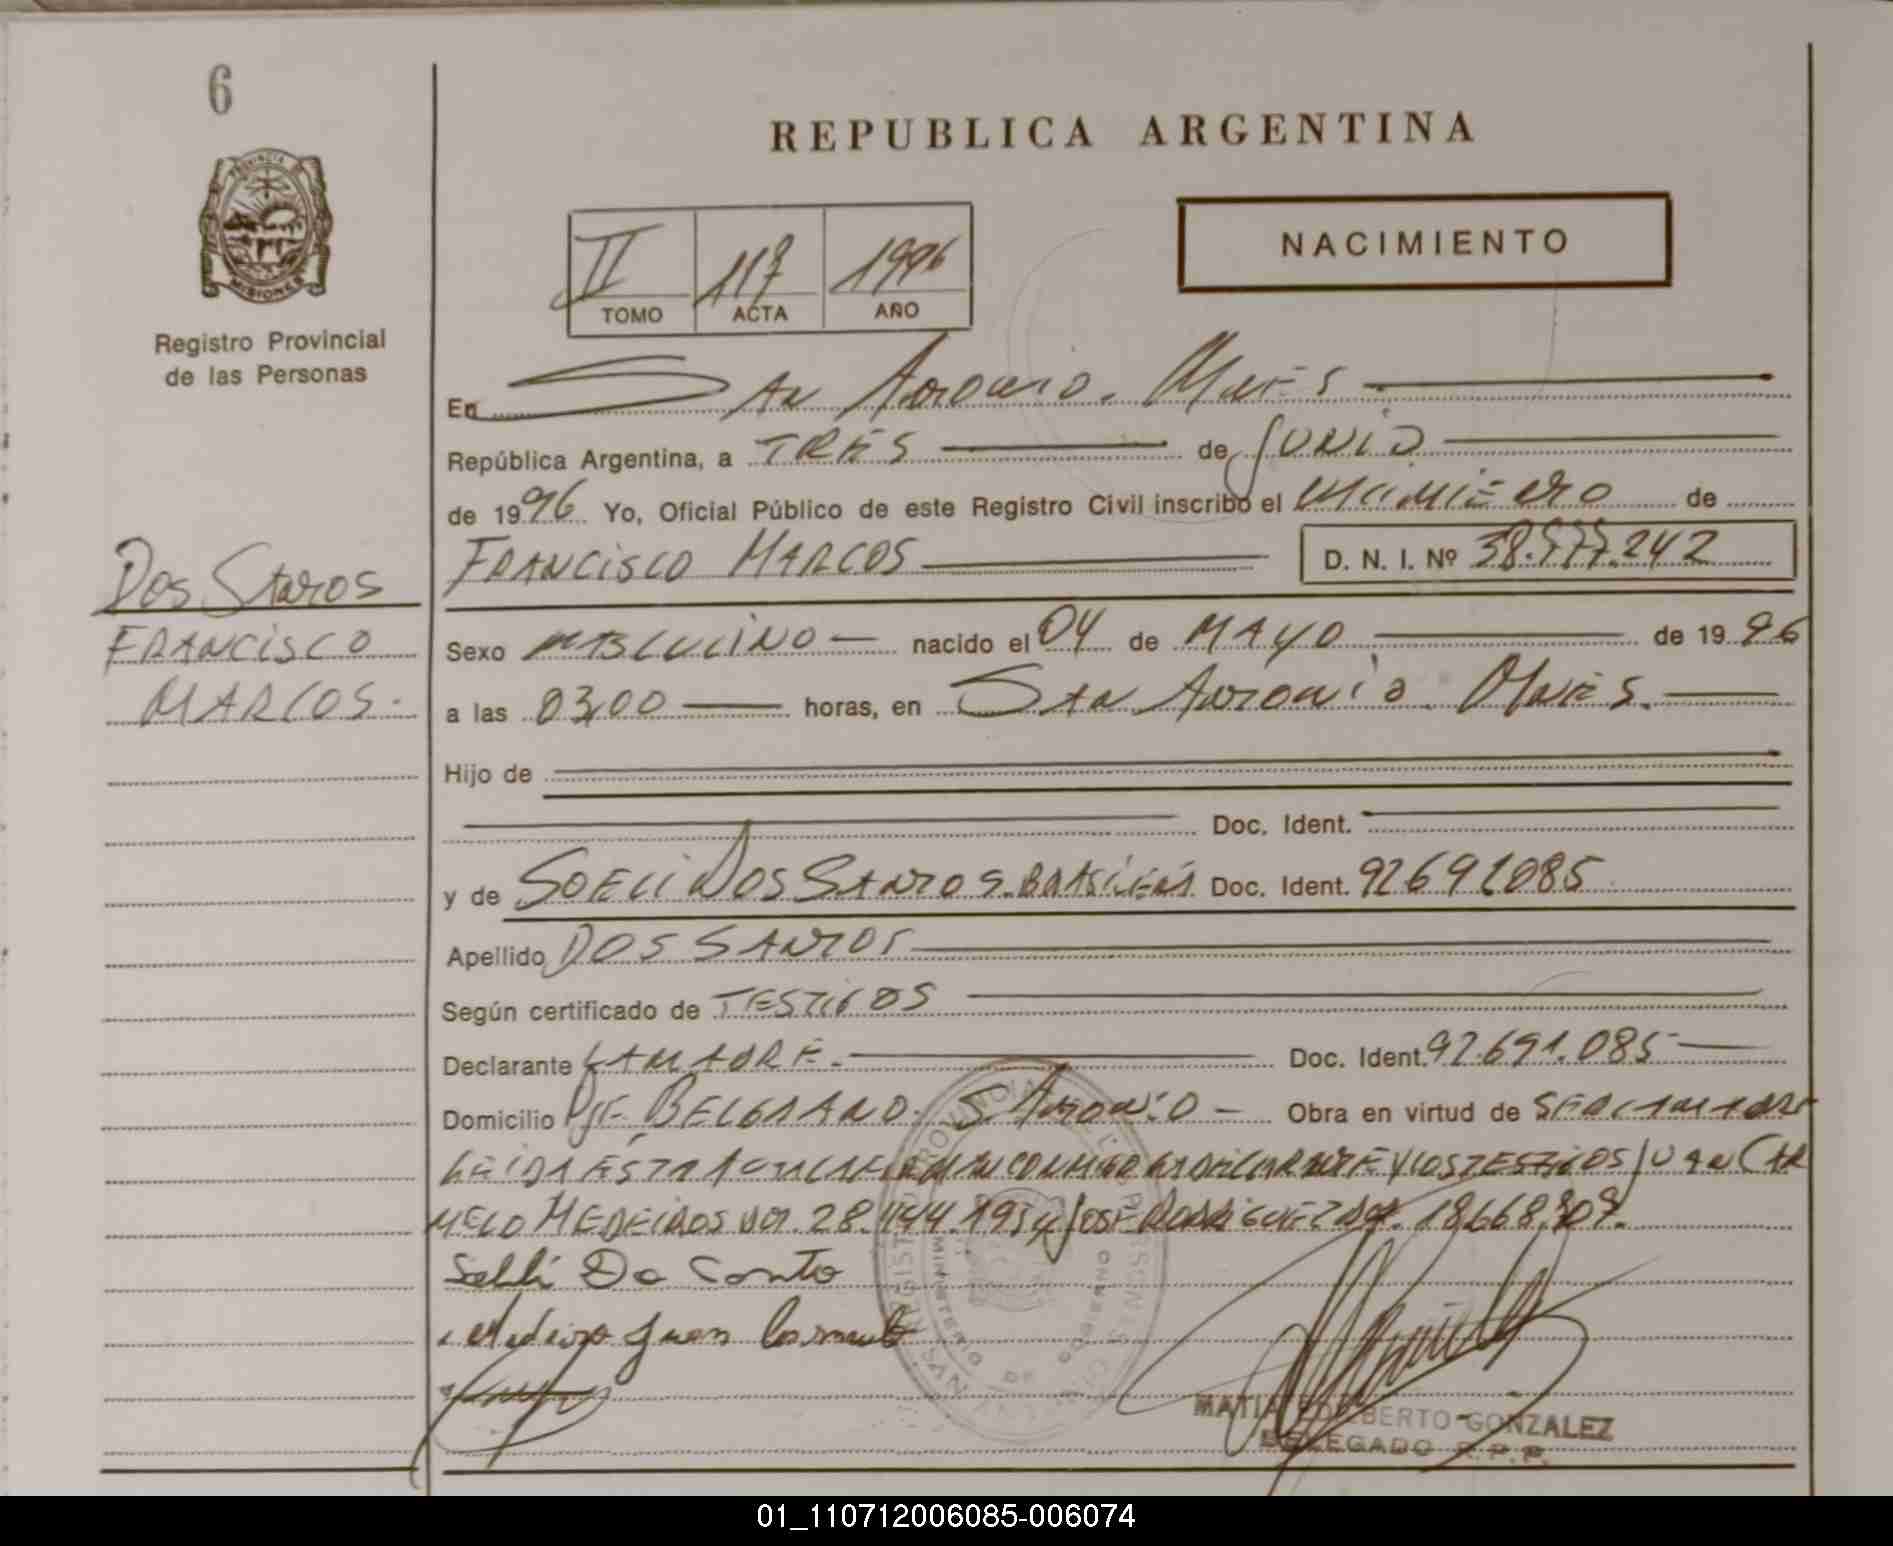 6
REPUBLICA ARGENTINA
PROVINCIA DE MISIONES
Registro Provincial
de las Personas
NACIMIENTO
II 117 1996
TOMO ACTA AÑO
En San Antonio. Mnes
República Argentina, a TRES de JUNIO
de 1996 Yo, Oficial Público de este Registro Civil inscribo el nacimiento de
FRANCISCO MARCOS D. N. I. Nº 38.777.242
Dos Santos
FRANCISCO
MARCOS.
Sexo MASCULINO nacido el 04 de MAYO de 1996
a las 03,00 horas, en San Antonio. Mnes.
Hijo de
Doc. Ident.
y de SOELI DOS SANTOS. BRASILEÑA Doc. Ident. 92691085
Apellido DOS SANTOS
Según certificado de TESTIGOS
Declarante LA MADRE. Doc. Ident. 92.691.085
Domicilio Pje. BELGRANO. S. Antonio Obra en virtud de SER LA MADRE
LEIDA ESTA ACTA LA FIRMAN CONMIGO LA DECLARANTE Y LOS TESTIGOS JUAN CAR
MELO MEDEIROS DNI. 28.444.195 y JOSE RODRIGUEZ DNI. 18.668.909.
Medeiros Juan Carmelo
REGISTRO PROVINCIAL DE LAS PERSONAS
MINISTERIO DE GOBIERNO
MATIA EDILBERTO GONZALEZ
DELEGADO R.P.P.
01_110712006085-006074